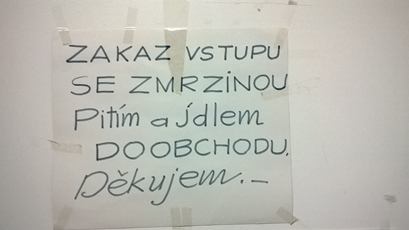 ZAKAZ VSTUPU
SE ZMRZINOU
Pitím a jdlem
DOOBCHODU.
Děkujem.-